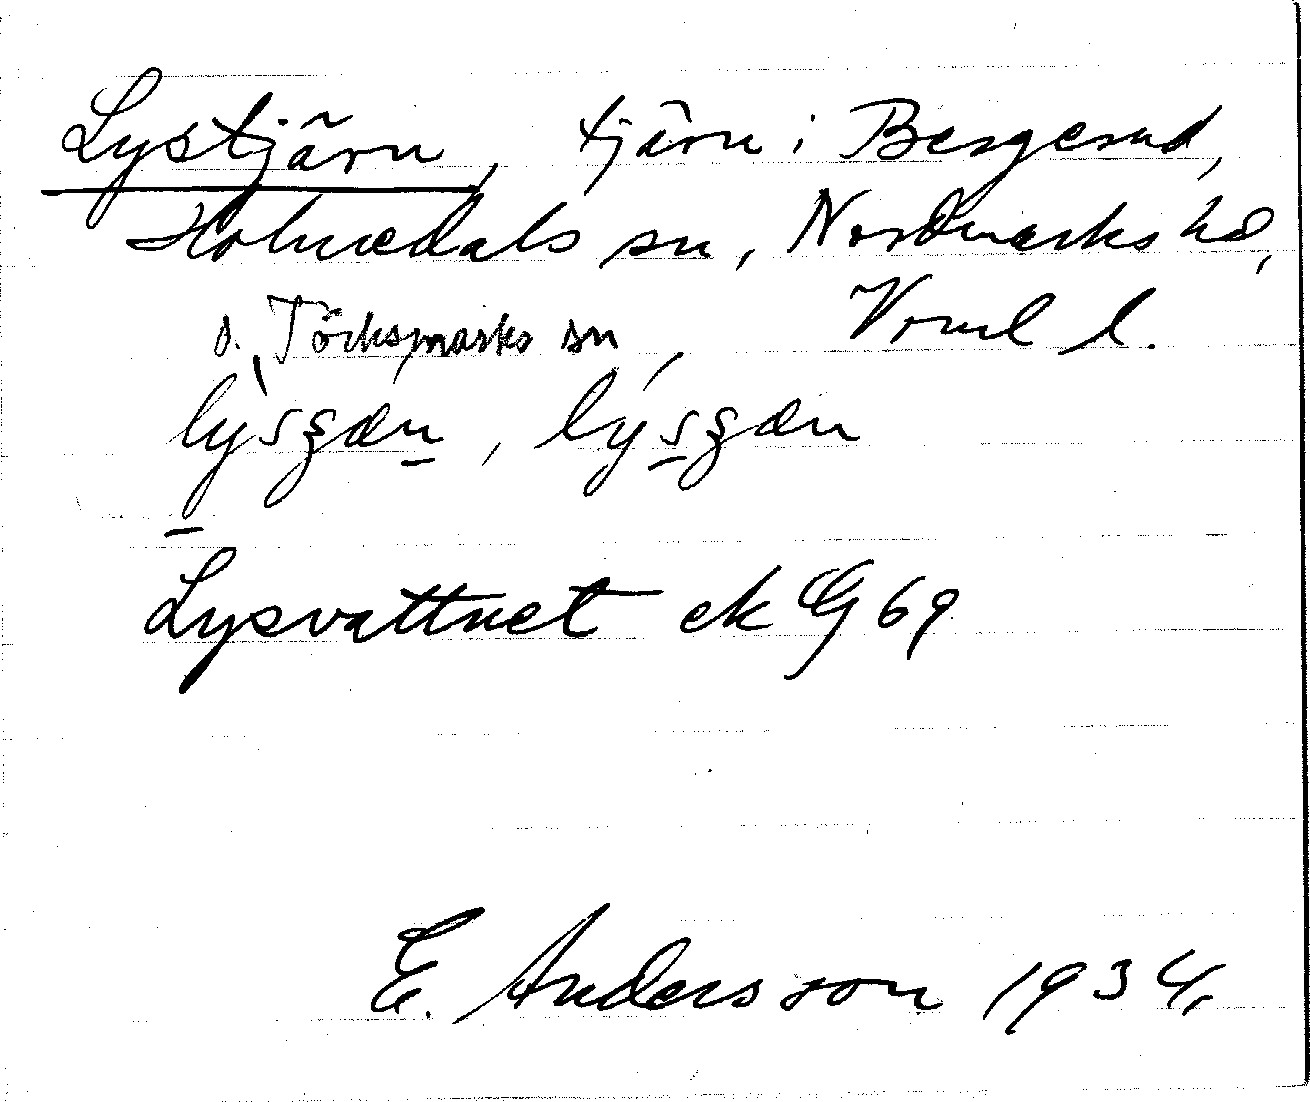 Lystjärn, tjärn i Bergerud,
Holmedals sn, Nordmarks hd,
o. Töcksmarks sn, Vrml l.
Lysvattnet ek G 69
E. Andersson 1934.